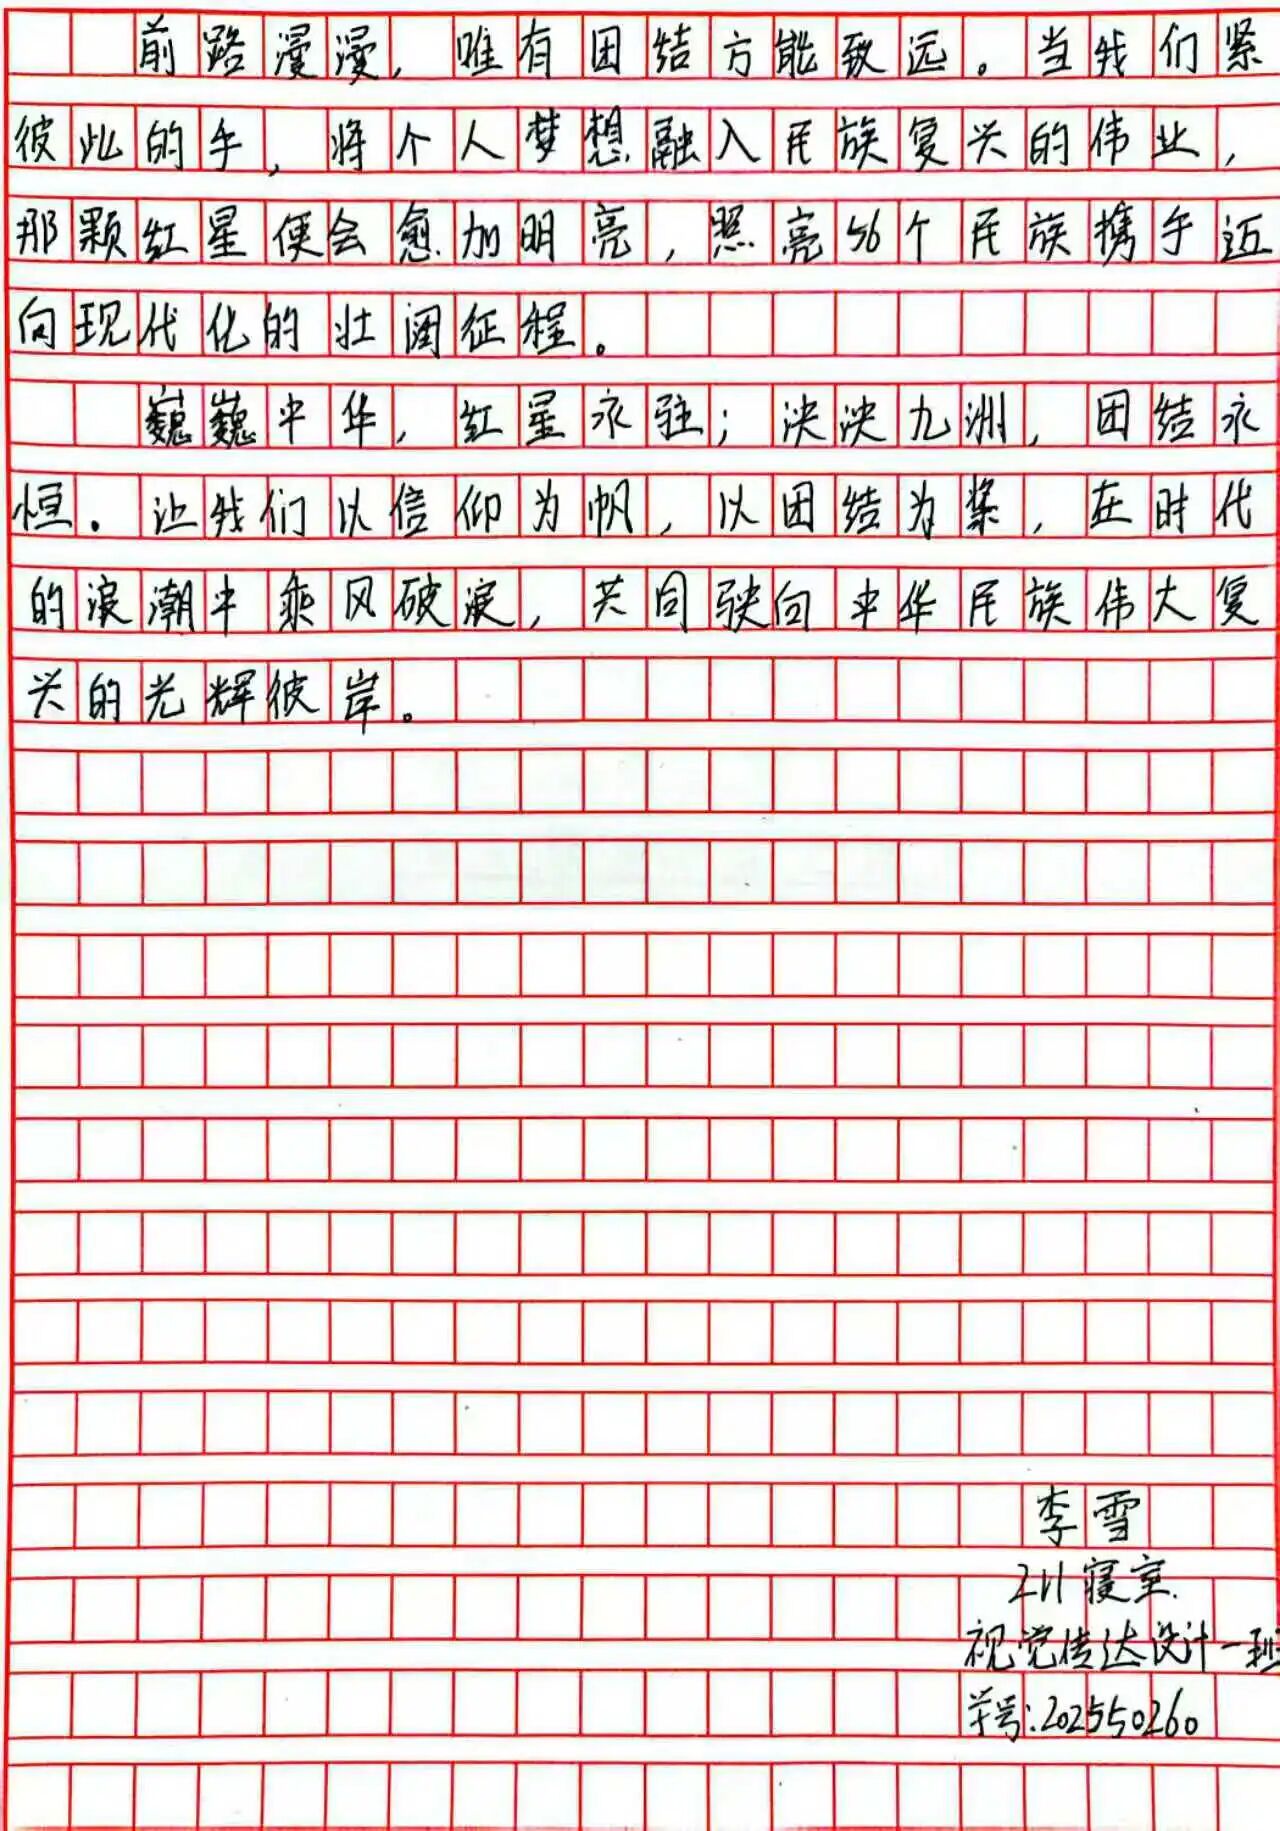 前路漫漫，唯有团结方能致远。当我们紧
彼此的手，将个人梦想融入民族复兴的伟业，
那颗红星便会愈加明亮，照亮56个民族携手迈
向现代化的壮阔征程。
巍巍中华，红星永驻；泱泱九洲，团结永
恒。让我们以信仰为帆，以团结为桨，在时代
的浪潮中乘风破浪，共同驶向中华民族伟大复
兴的光辉彼岸。
李雪
211寝室.
视觉传达设计一班
学号:202550260